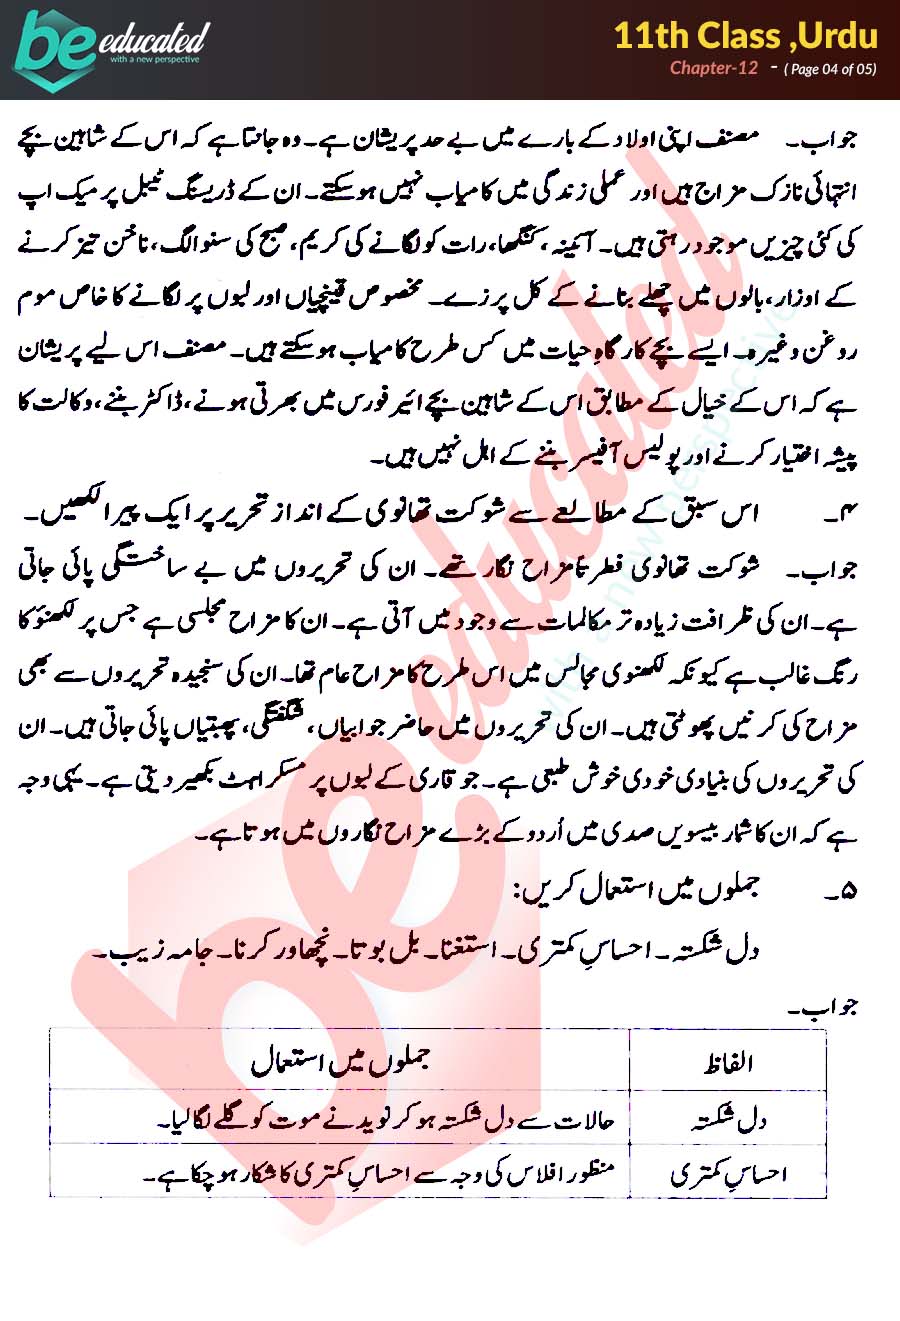 be educated
with a new perspective
11th Class ,Urdu
Chapter-12 - ( Page 04 of 05)
جواب۔ مصنف اپنی اولاد کے بارے میں بے حد پریشان ہے۔ وہ جانتا ہے کہ اس کے شاہین بچے
انتہائی نازک مزاج ہیں اور عملی زندگی میں کامیاب نہیں ہو سکتے۔ ان کے ڈریسنگ ٹیبل پر میک اپ
کی کئی چیزیں موجود رہتی ہیں۔ آئینہ، کنگھا، رات کو لگانے کی کریم، صبح کی سنو الگ، ناخن تیز کرنے
کے اوزار، بالوں میں چھلے بنانے کے کل پرزے۔ مخصوص قینچیاں اور لبوں پر لگانے کا خاص موم
روغن وغیرہ۔ ایسے بچے کارگاہِ حیات میں کس طرح کامیاب ہو سکتے ہیں۔ مصنف اس لیے پریشان
ہے کہ اس کے خیال کے مطابق اس کے شاہین بچے ائیر فورس میں بھرتی ہونے، ڈاکٹر بننے، وکالت کا
پیشہ اختیار کرنے اور پولیس آفیسر بننے کے اہل نہیں ہیں۔
۴۔ اس سبق کے مطالعے سے شوکت تھانوی کے انداز تحریر پر ایک پیرا لکھیں۔
جواب۔ شوکت تھانوی فطرتاً مزاح نگار تھے۔ ان کی تحریروں میں بے ساختگی پائی جاتی
ہے۔ ان کی ظرافت زیادہ تر مکالمات سے وجود میں آتی ہے۔ ان کا مزاح مجلسی ہے جس پر لکھنؤ کا
رنگ غالب ہے کیونکہ لکھنوی مجالس میں اس طرح کا مزاح عام تھا۔ ان کی سنجیدہ تحریروں سے بھی
مزاح کی کرنیں پھوٹتی ہیں۔ ان کی تحریروں میں حاضر جوابیاں، شگفتگی، پھبتیاں پائی جاتی ہیں۔ ان
کی تحریروں کی بنیادی خودی خوش طبعی ہے۔ جو قاری کے لبوں پر مسکراہٹ بکھیر دیتی ہے۔ یہی وجہ
ہے کہ ان کا شمار بیسویں صدی میں اُردو کے بڑے مزاح نگاروں میں ہوتا ہے۔
۵۔ جملوں میں استعمال کریں:
دل شکستہ۔ احساسِ کمتری۔ استغنا۔ بل بوتا۔ نچھاور کرنا۔ جامہ زیب۔
جواب۔
الفاظ جملوں میں استعمال
دل شکستہ حالات سے دل شکستہ ہو کر نوید نے موت کو گلے لگا لیا۔
احساسِ کمتری منظور افلاس کی وجہ سے احساسِ کمتری کا شکار ہو چکا ہے۔
be educated
with a new perspective